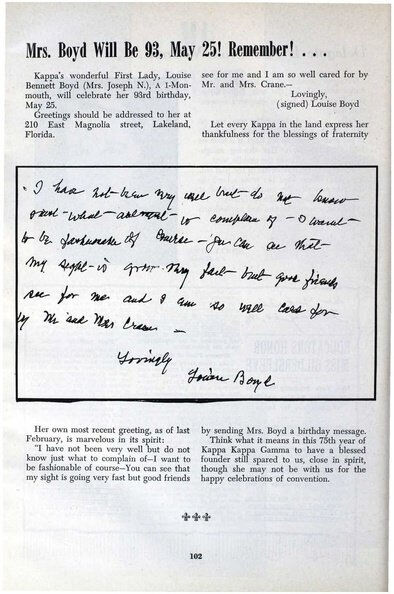 Mrs. Boyd Will Be 93, May 25! Remember! . . .
Kappa's wonderful First Lady, Louise
Bennett Boyd (Mrs. Joseph N.), A 1-Mon-
mouth, will celebrate her 93rd birthday,
May 25.
Greetings should be addressed to her at
210 East Magnolia street, Lakeland,
Florida.
see for me and I am so well cared for by
Mr. and Mrs. Crane.—
Lovingly,
(signed) Louise Boyd
Let every Kappa in the land express her
thankfulness for the blessings of fraternity
I have not been very well but do not know
just what to complain of – I want
to be fashionable of course – you can see that
my sight is going very fast but good friends
see for me and I am so well care for
by Mr and Mrs Crane –
Lovingly
Louise Boyd
Her own most recent greeting, as of last
February, is marvelous in its spirit:
"I have not been very well but do not
know just what to complain of—I want to
be fashionable of course—You can see that
my sight is going very fast but good friends
by sending Mrs. Boyd a birthday message.
Think what it means in this 75th year of
Kappa Kappa Gamma to have a blessed
founder still spared to us, close in spirit,
though she may not be with us for the
happy celebrations of convention.
102